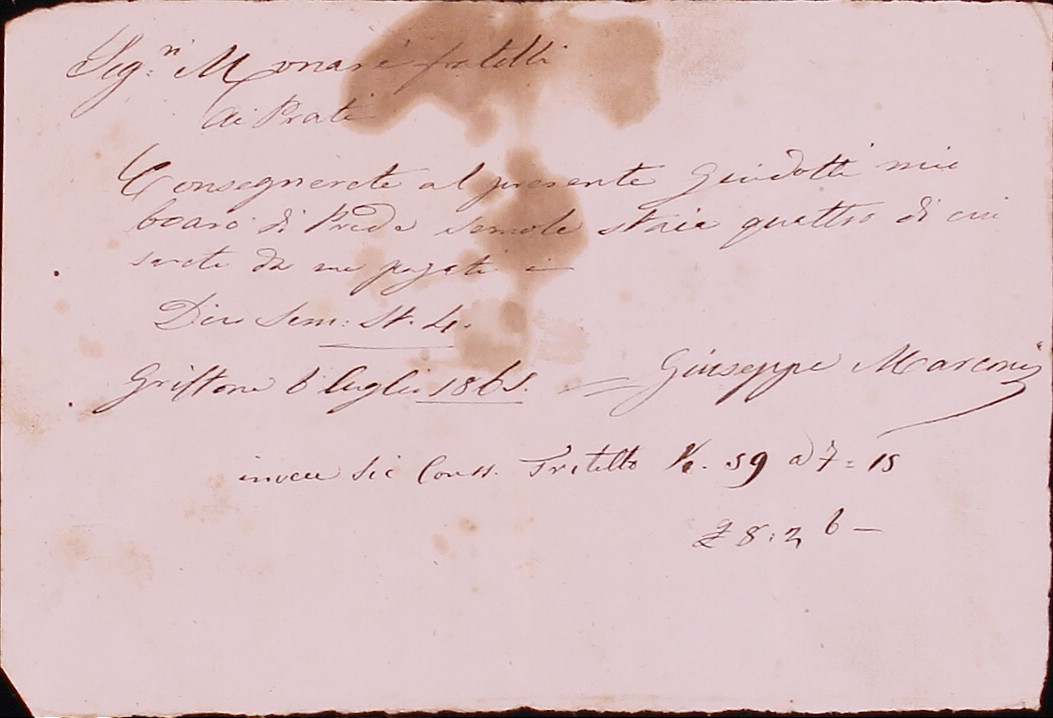 Sig:ri Monari fratelli
ai Prati
Consegnerete al presente Guidotti mio
boaro di Preda semole staia quattro di cui
sarete da me pagati
Dico Sem: St. 4.
Griffone 6 luglio 1865. Giuseppe Marconi
invece Si è Cons. Tritello 59 a 7=15
£ 8:2 6 —